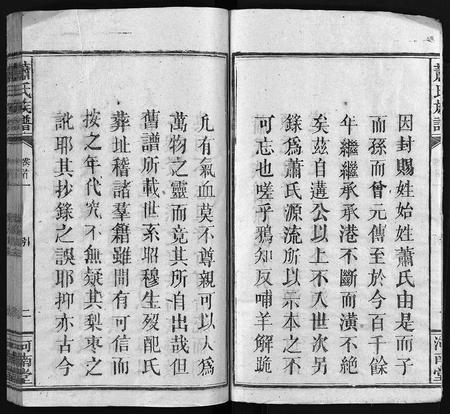 蕭氏族譜
因封賜姓始姓蕭氏由是而子
而孫而曾元傳至於今百千餘
年繼繼承承港不斷而潢不絕
矣茲自遘公以上不入世次另
錄爲蕭氏源流所以示本之不
可忘也嗟乎鴉知反哺羊解跪
河南堂
凡有氣血莫不尊親可以人爲
萬物之靈而竟其所自出哉但
舊譜所載世系昭穆生歿配氏
葬址稽諸羣籍雖間有可信而
按之年代究不無疑其梨棗之
訛耶其抄錄之誤耶抑亦古今
蕭氏族譜
卷首
引
二
河南堂